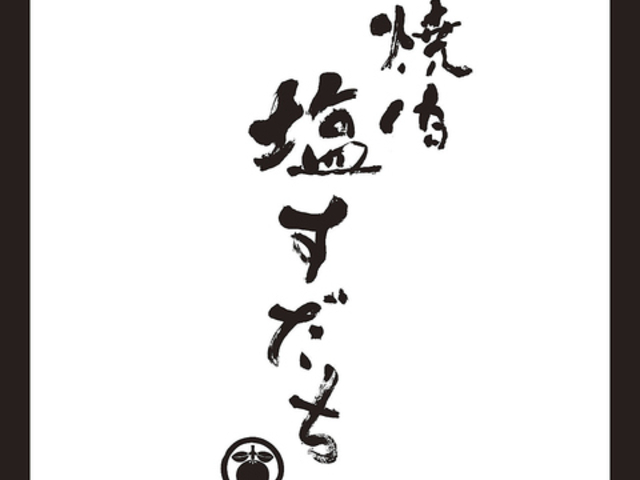 焼肉
塩すだち